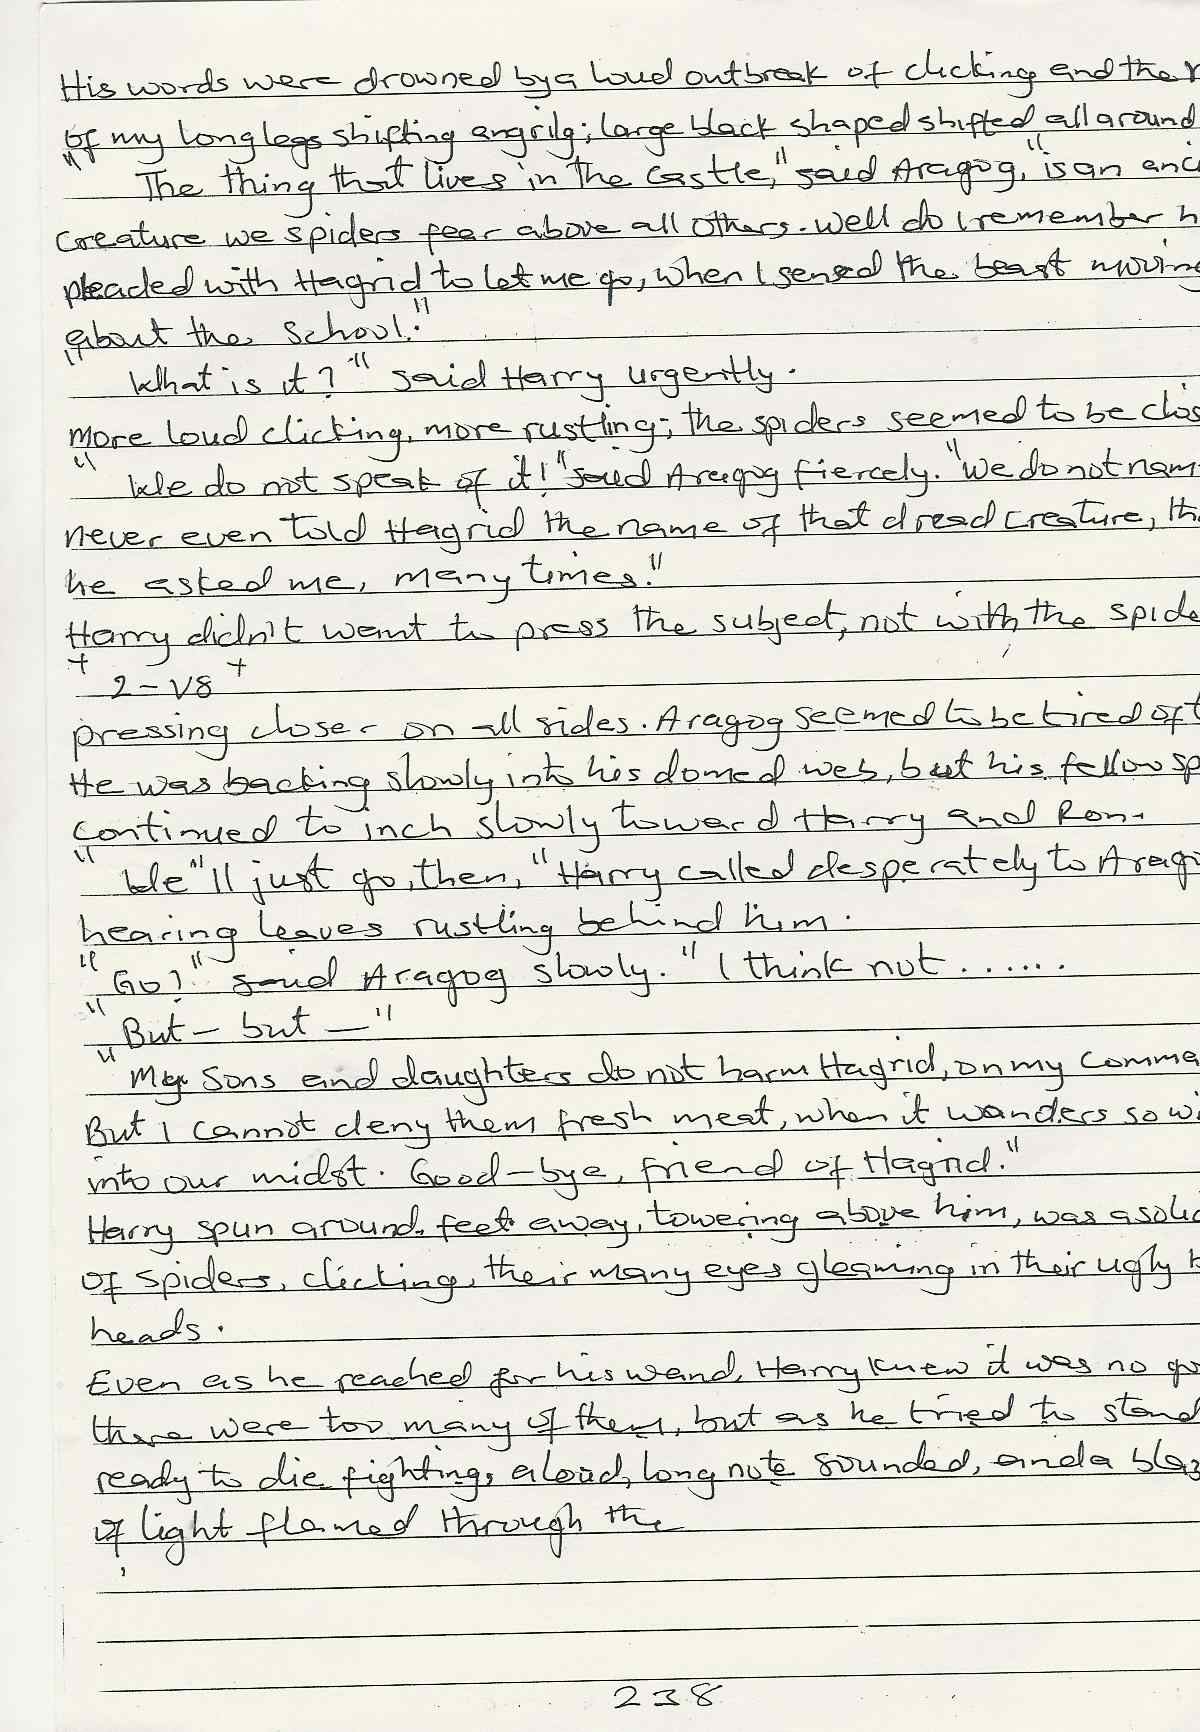 His words were drowned by a loud outbreak of clicking and the r
of my long legs shifting angrily; large black shaped shifted all around
"The thing that lives in the castle," said Aragog, "is an anci
creature we spiders fear above all others. Well do I remember h
pleaded with Hagrid to let me go, when I sensed the beast moving
about the school."
"What is it?" said Harry urgently.
More loud clicking, more rustling; the spiders seemed to be clos
"We do not speak of it!" said Aragog fiercely. "We do not nam
never even told Hagrid the name of that dread creature, th
he asked me, many times."
Harry didn't want to press the subject, not with the spide
+ 2-V8 +
pressing closer on all sides. Aragog seemed to be tired of t
He was backing slowly into his domed web, but his fellow sp
continued to inch slowly toward Harry and Ron.
"We"ll just go, then," Harry called desperately to Arago
hearing leaves rustling behind him.
"Go?" said Aragog slowly. "I think not ......
"But - but —"
"My sons and daughters do not harm Hagrid, on my comma
But I cannot deny them fresh meat, when it wanders so wi
into our midst. Good-bye, friend of Hagrid."
Harry spun around, feet away, towering above him, was a solid
of spiders, clicking, their many eyes gleaming in their ugly b
heads.
Even as he reached for his wand, Harry knew it was no go
there were too many of them, but as he tried to stand
ready to die fighting, a loud, long note sounded, and a blaz
of light flamed through the
238